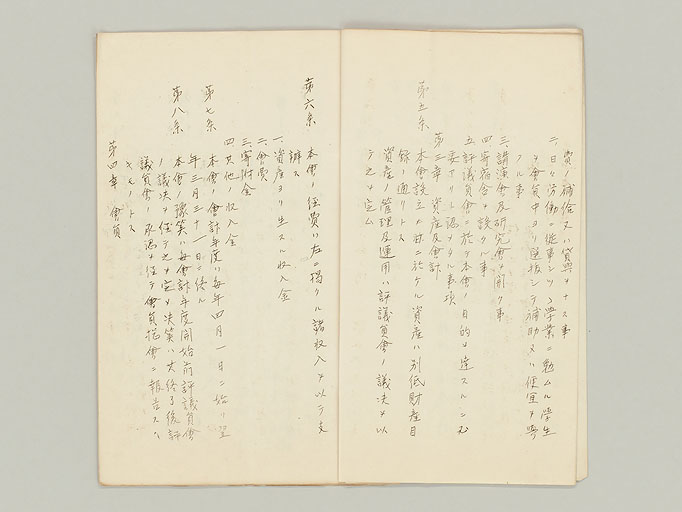 費ノ補給又ハ貸與ヲナス事
二、日々労働ニ從事シツヽ學業ニ勉ムル學生
ヲ會員中ヨリ選抜シテ補助又ハ便宜ヲ與
フル事
三、講演會及研究會ヲ開ク事
四、寄宿舎ヲ設クル事
五、評議員會ニ於テ本會ノ目的ヲ達スルニ必
要ナリト認メタル事項
第三章 資産及會計
第五条
本會設立ノ時ニ於ケル資産ハ別低財産目
録ノ通リトス
資産ノ管理及運用ハ評議員會ノ議決ヲ以
テ之ヲ定ム
第六条
本會ノ経費ハ左ニ掲クル諸収入ヲ以テ支
辨ス
一、資産ヨリ生スル収入金
二、會費
三、寄附金
四、其他ノ収入金
第七条
本會ノ會計年度ハ毎年四月一日ニ始リ翌
年三月三十一日ニ終ル
第八条
本會ノ豫算ハ毎會計年度開始前評議員會
ノ議決ヲ経テ之ヲ定メ決算ハ其終了後評
議員會ノ承認ヲ経テ會員総會ニ報告スヘ
キモノトス
第四章 會員